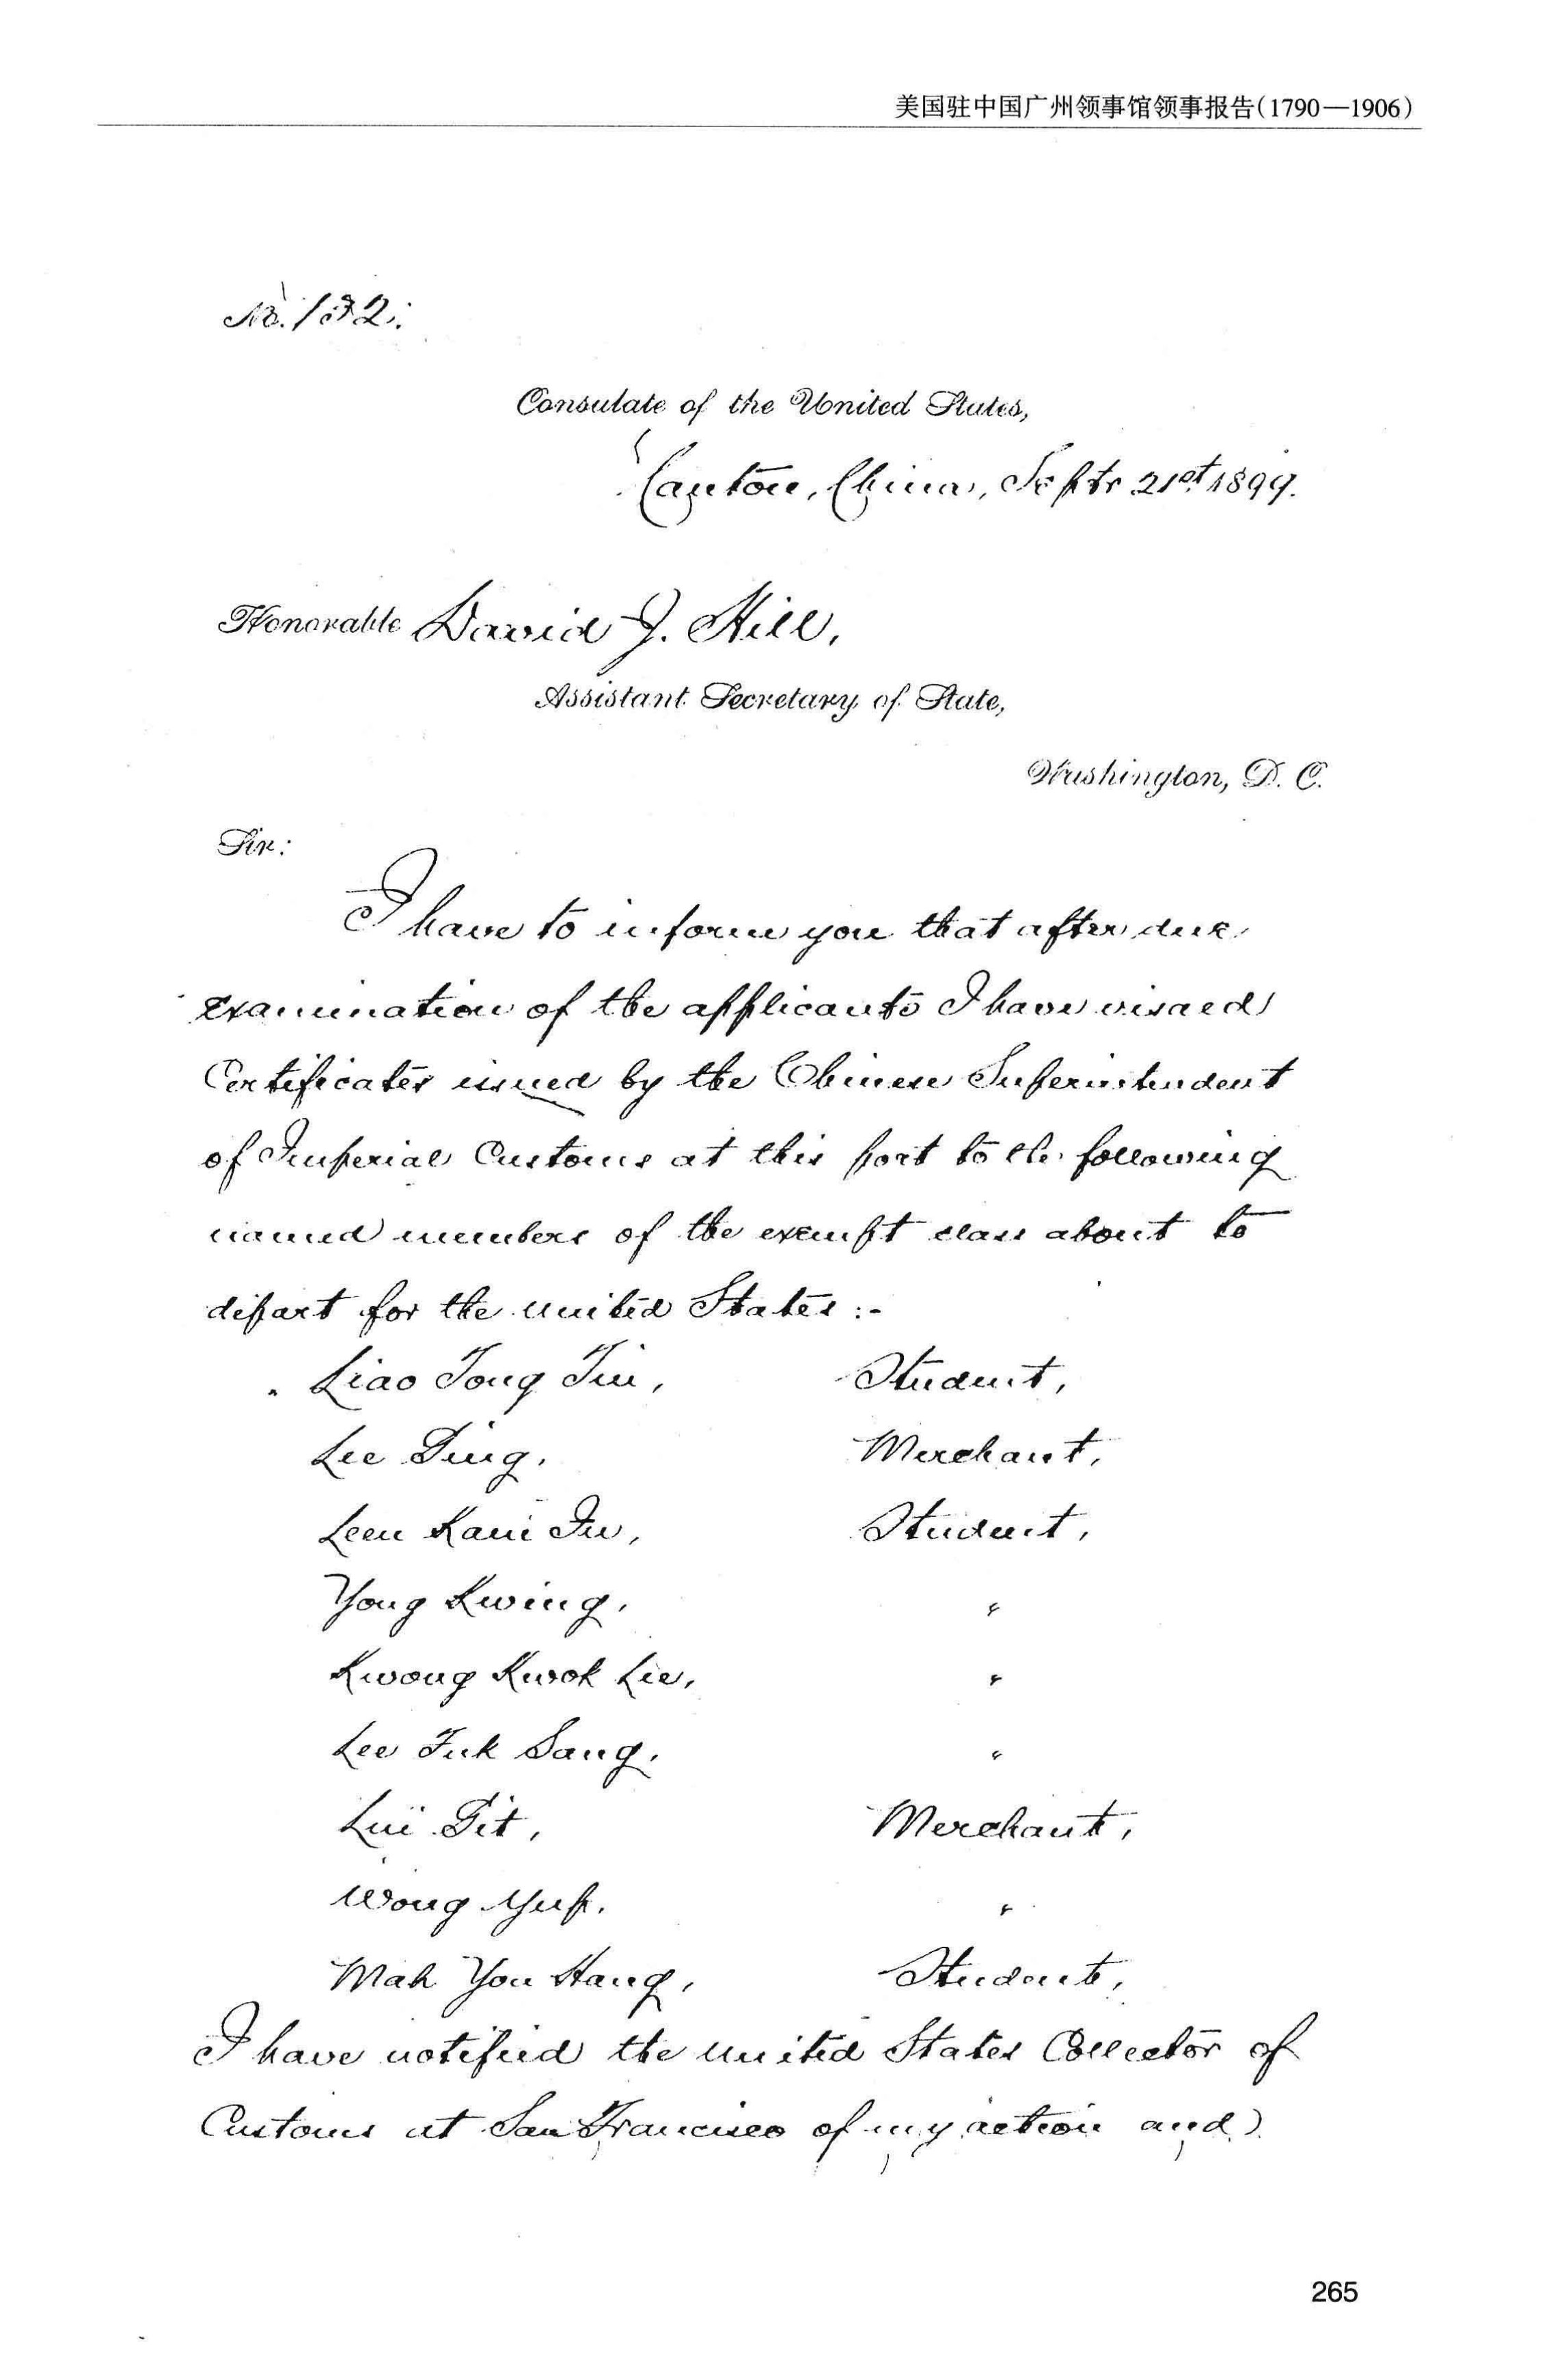 美国驻中国广州领事馆领事报告(1790—1906)
No. 132.
Consulate of the United States,
Canton, China, Septr 21st 1899.
Honorable David J. Hill,
Assistant Secretary of State,
Washington, D. C.
Sir:
I have to inform you that after due
examination of the applicants I have visaed
Certificates issued by the Chinese Superintendent
of Imperial Customs at this port to the following
named members of the exempt class about to
depart for the United States :-
Liao Tong Tin, Student,
Lee Ping, Merchant,
Leen Kam Fu, Student,
Yong Kwing, "
Kwong Kwok Lie, "
Lee Fuk Sang, "
Lui Pit, Merchant,
Wong Yup, "
Mah You Hang, Student,
I have notified the United States Collector of
Customs at San Francisco of my action and
265